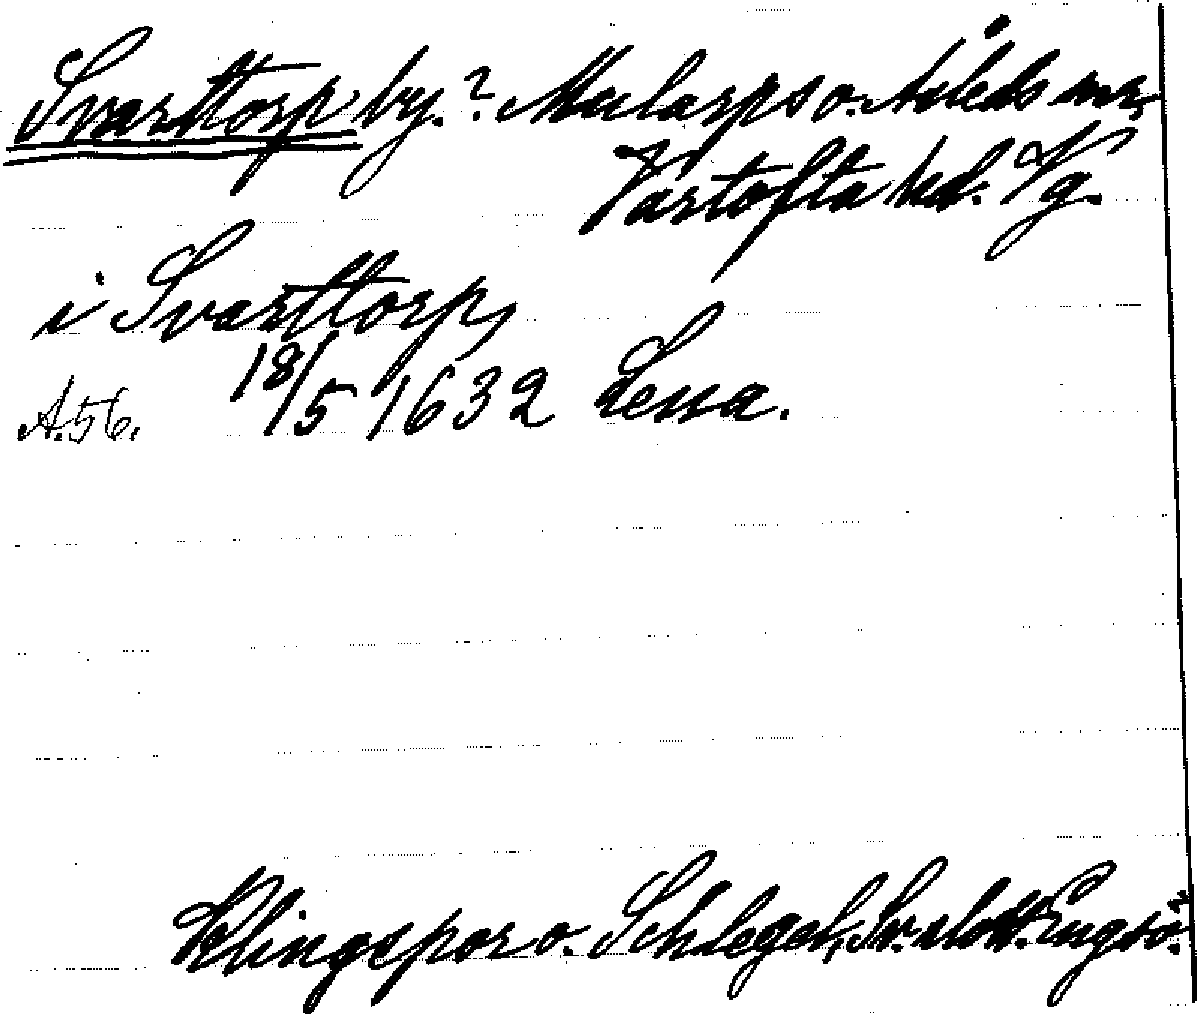 Svarttorp by.? Mularps o. Åsleds snr,
Vartofta hd. Vg.
i Svarttorp,
18/5 1632 Lena.
A.56.
Klingspor o. Schlegel, Sv. slott. Engsö.